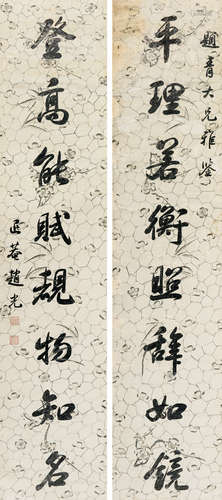 青大兄雅鑒
平理若衡照辭如鏡
登高能賦覩物知名
菴趙光